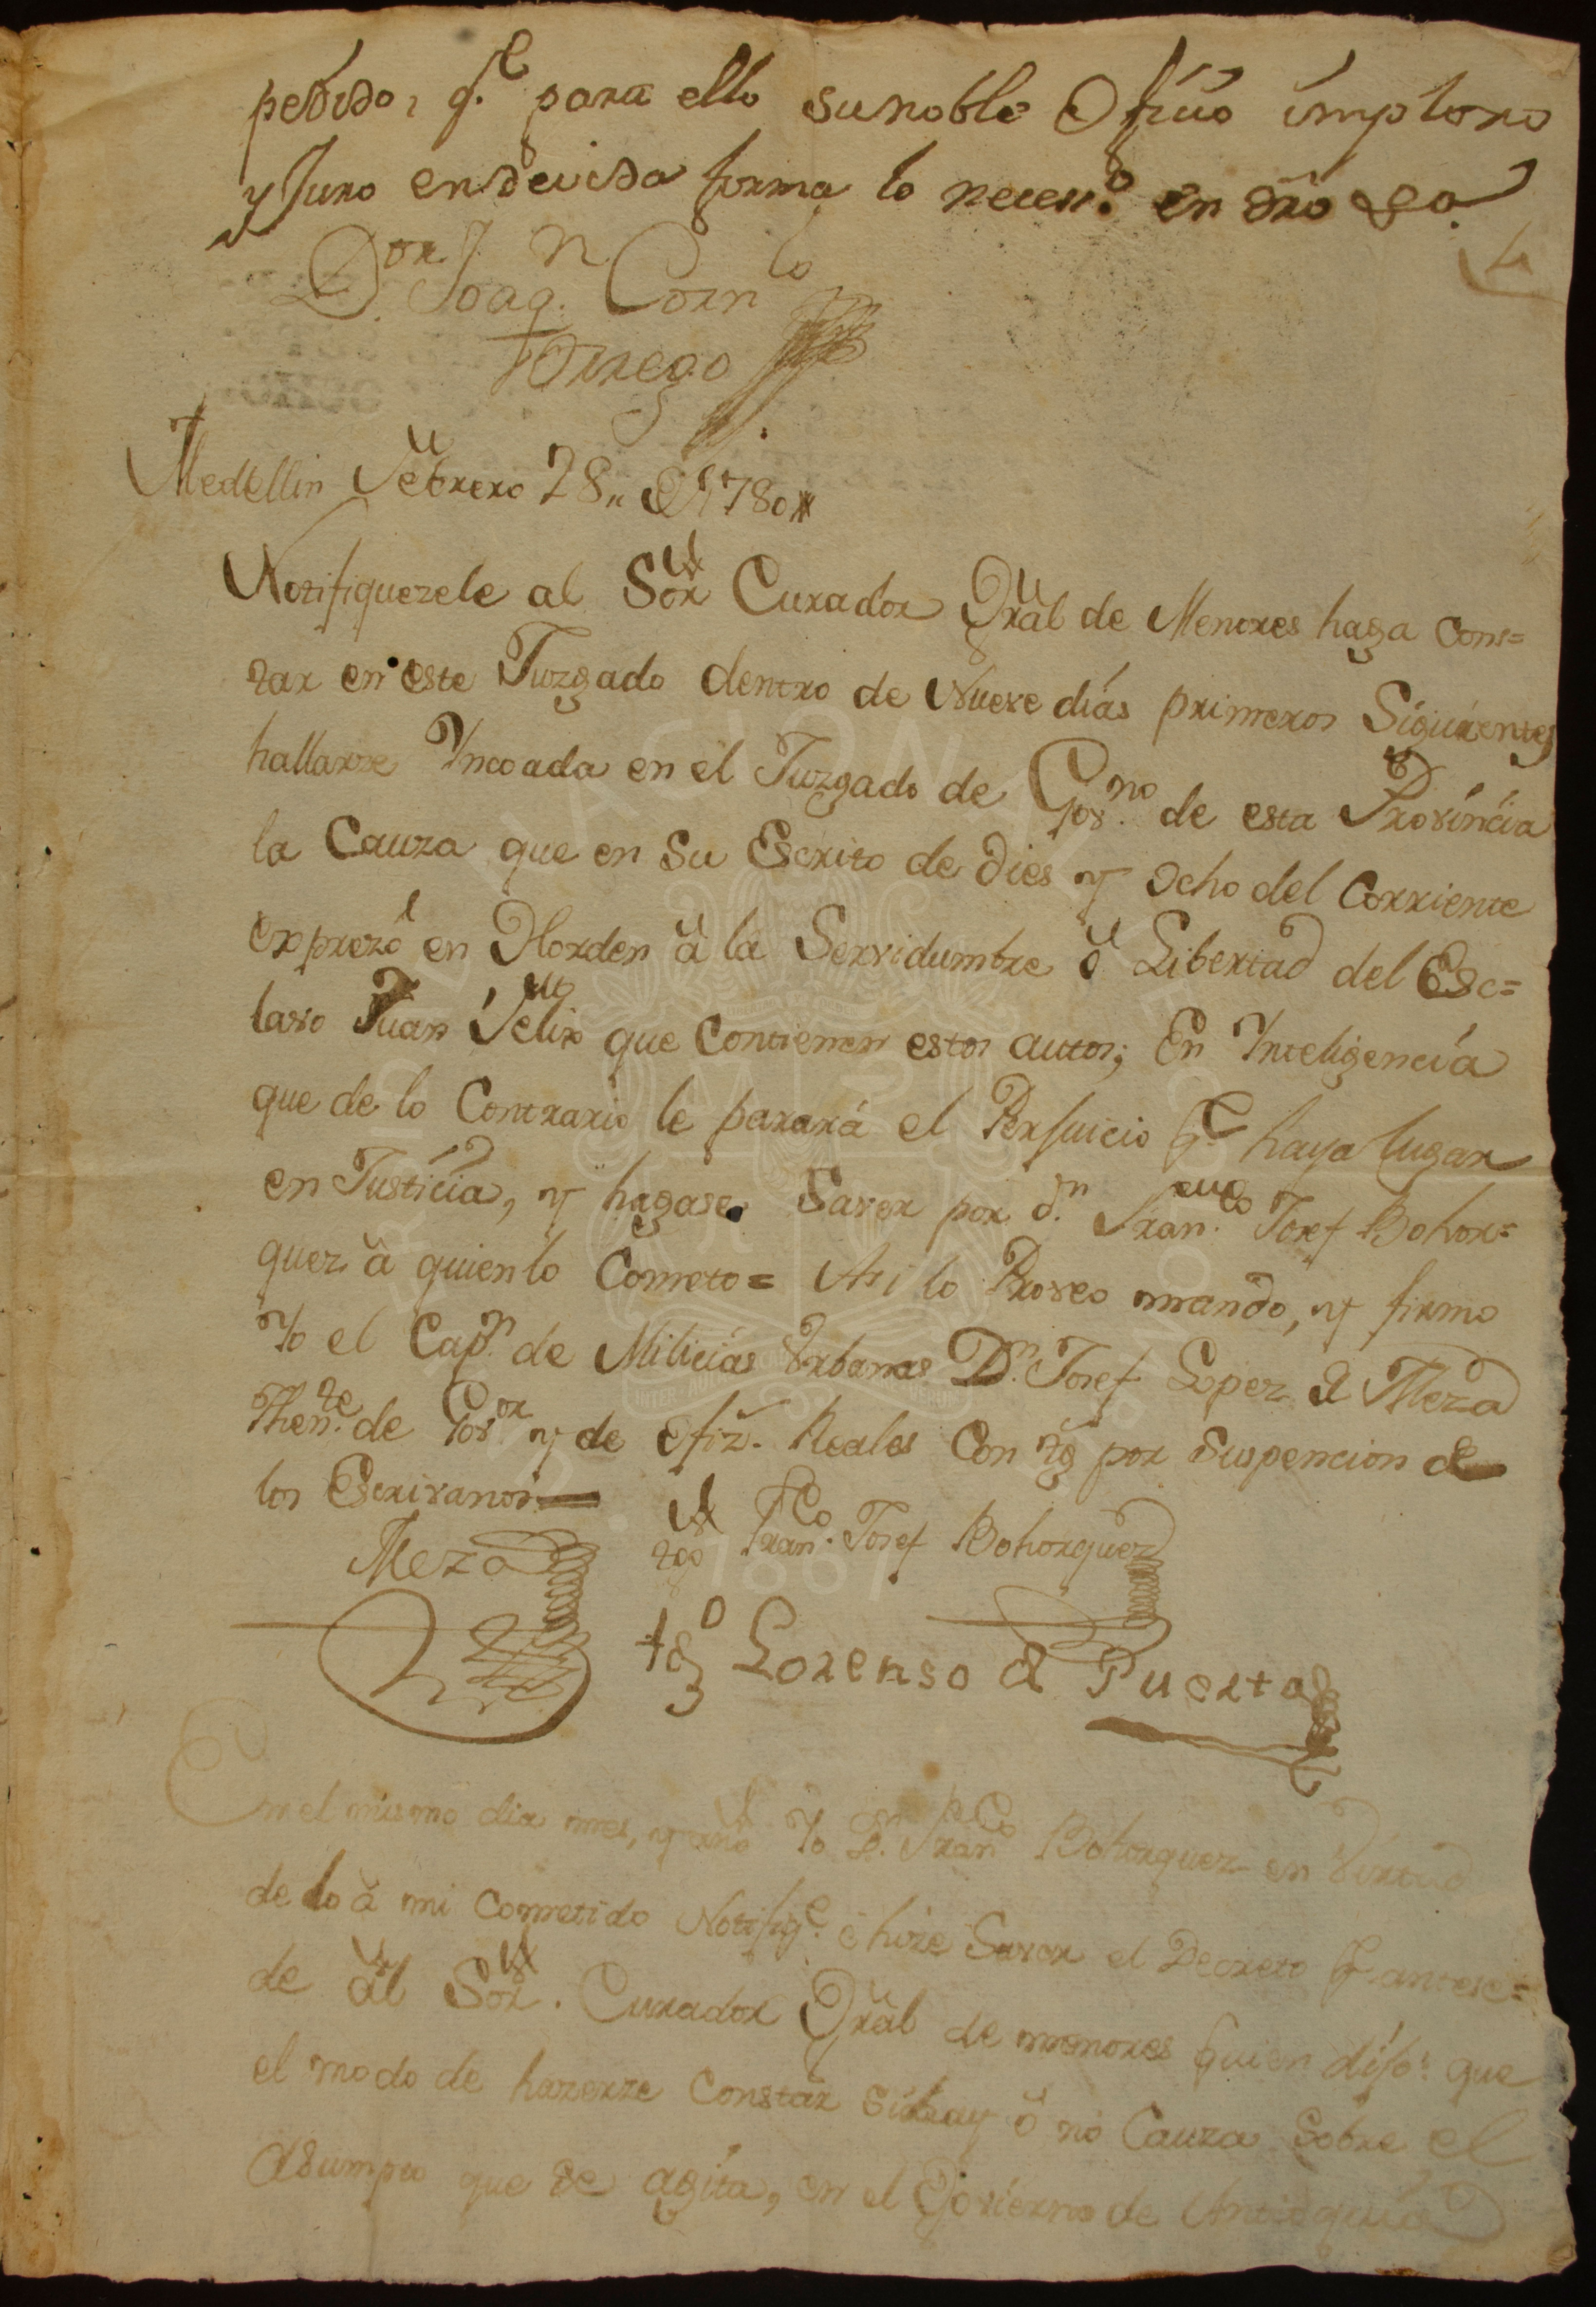 pedido, q.e para ello su noble Oficio imploro
y Juro en devida forma lo neces.o en dro &a.
D.or Joaq.n Corn.lo
Orrego
Medellin Febrero 28,, de 1780,,
Notifiquezele al Sor Curador Gral de Menores haga cons=
tar en este Juzgado dentro de Nueve dias primeros Siguientes
hallarze Yncoada en el Juzgado de Gov.no de esta Provincia
la Cauza que en Su Escrito de dies y ocho del Corriente
exprezó en Horden á la Servidumbre ó Libertad del Esc=
lavo Juan Felix que Contienen estos autos; En Ynteligencia
que de lo Contrario le parará el Perjuicio q.e haya lugar
en Justicia, y hagase Saver por d.n Fran.co Josef Bohor=
quez á quien lo Cometo = Asi lo Proveo mando, y firmo
Yo el Cap.n de Milicias Urbanas D.n Josef Lopez de Meza
Then.te de Gov.or y de ofiz. Reales Con tg por Suspencion de
los Escrivanos
Meza
tgo Fran.co Josef Bohorquez
tgo Lorenso de Puerta
En el mismo dia mes, y año Yo D.n Fran.co Bohorquez en Virtud
de lo á mi Cometido Notifiq.e é hize Saver el Decreto q antese=
de ál Sor. Curador Gral de menores quien dijo: que
el modo de hazerze Constar si hay ó no Cauza Sobre el
Asumpto que se agita, en el Govierno de Antioquia